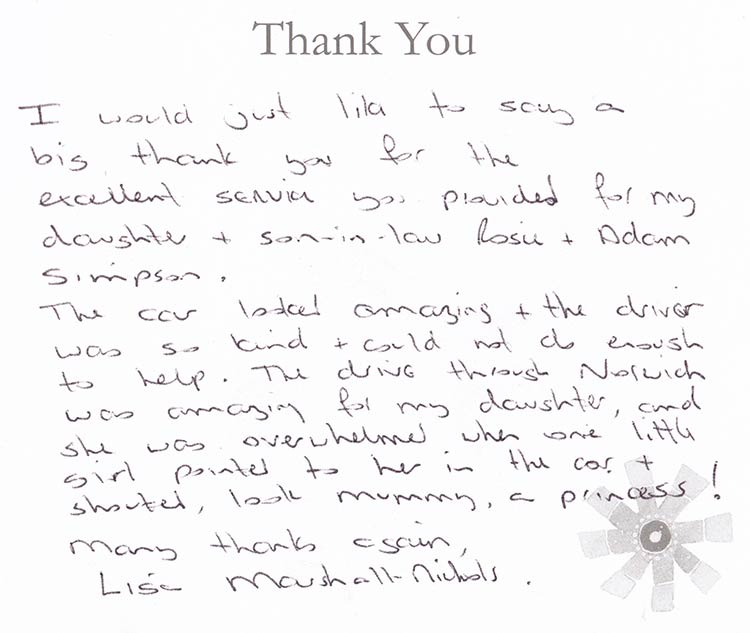 Thank You
I would just like to say a
big thank you for the
excellent service you provided for my
daughter + son-in-law Rosie + Adam
Simpson.
The car looked amazing + the driver
was so kind + could not do enough
to help. The drive through Norwich
was amazing for my daughter, and
she was overwhelmed when one little
girl pointed to her in the car +
shouted, look mummy, a princess!
Many thanks again,
Lisa Marshall-Nichols.